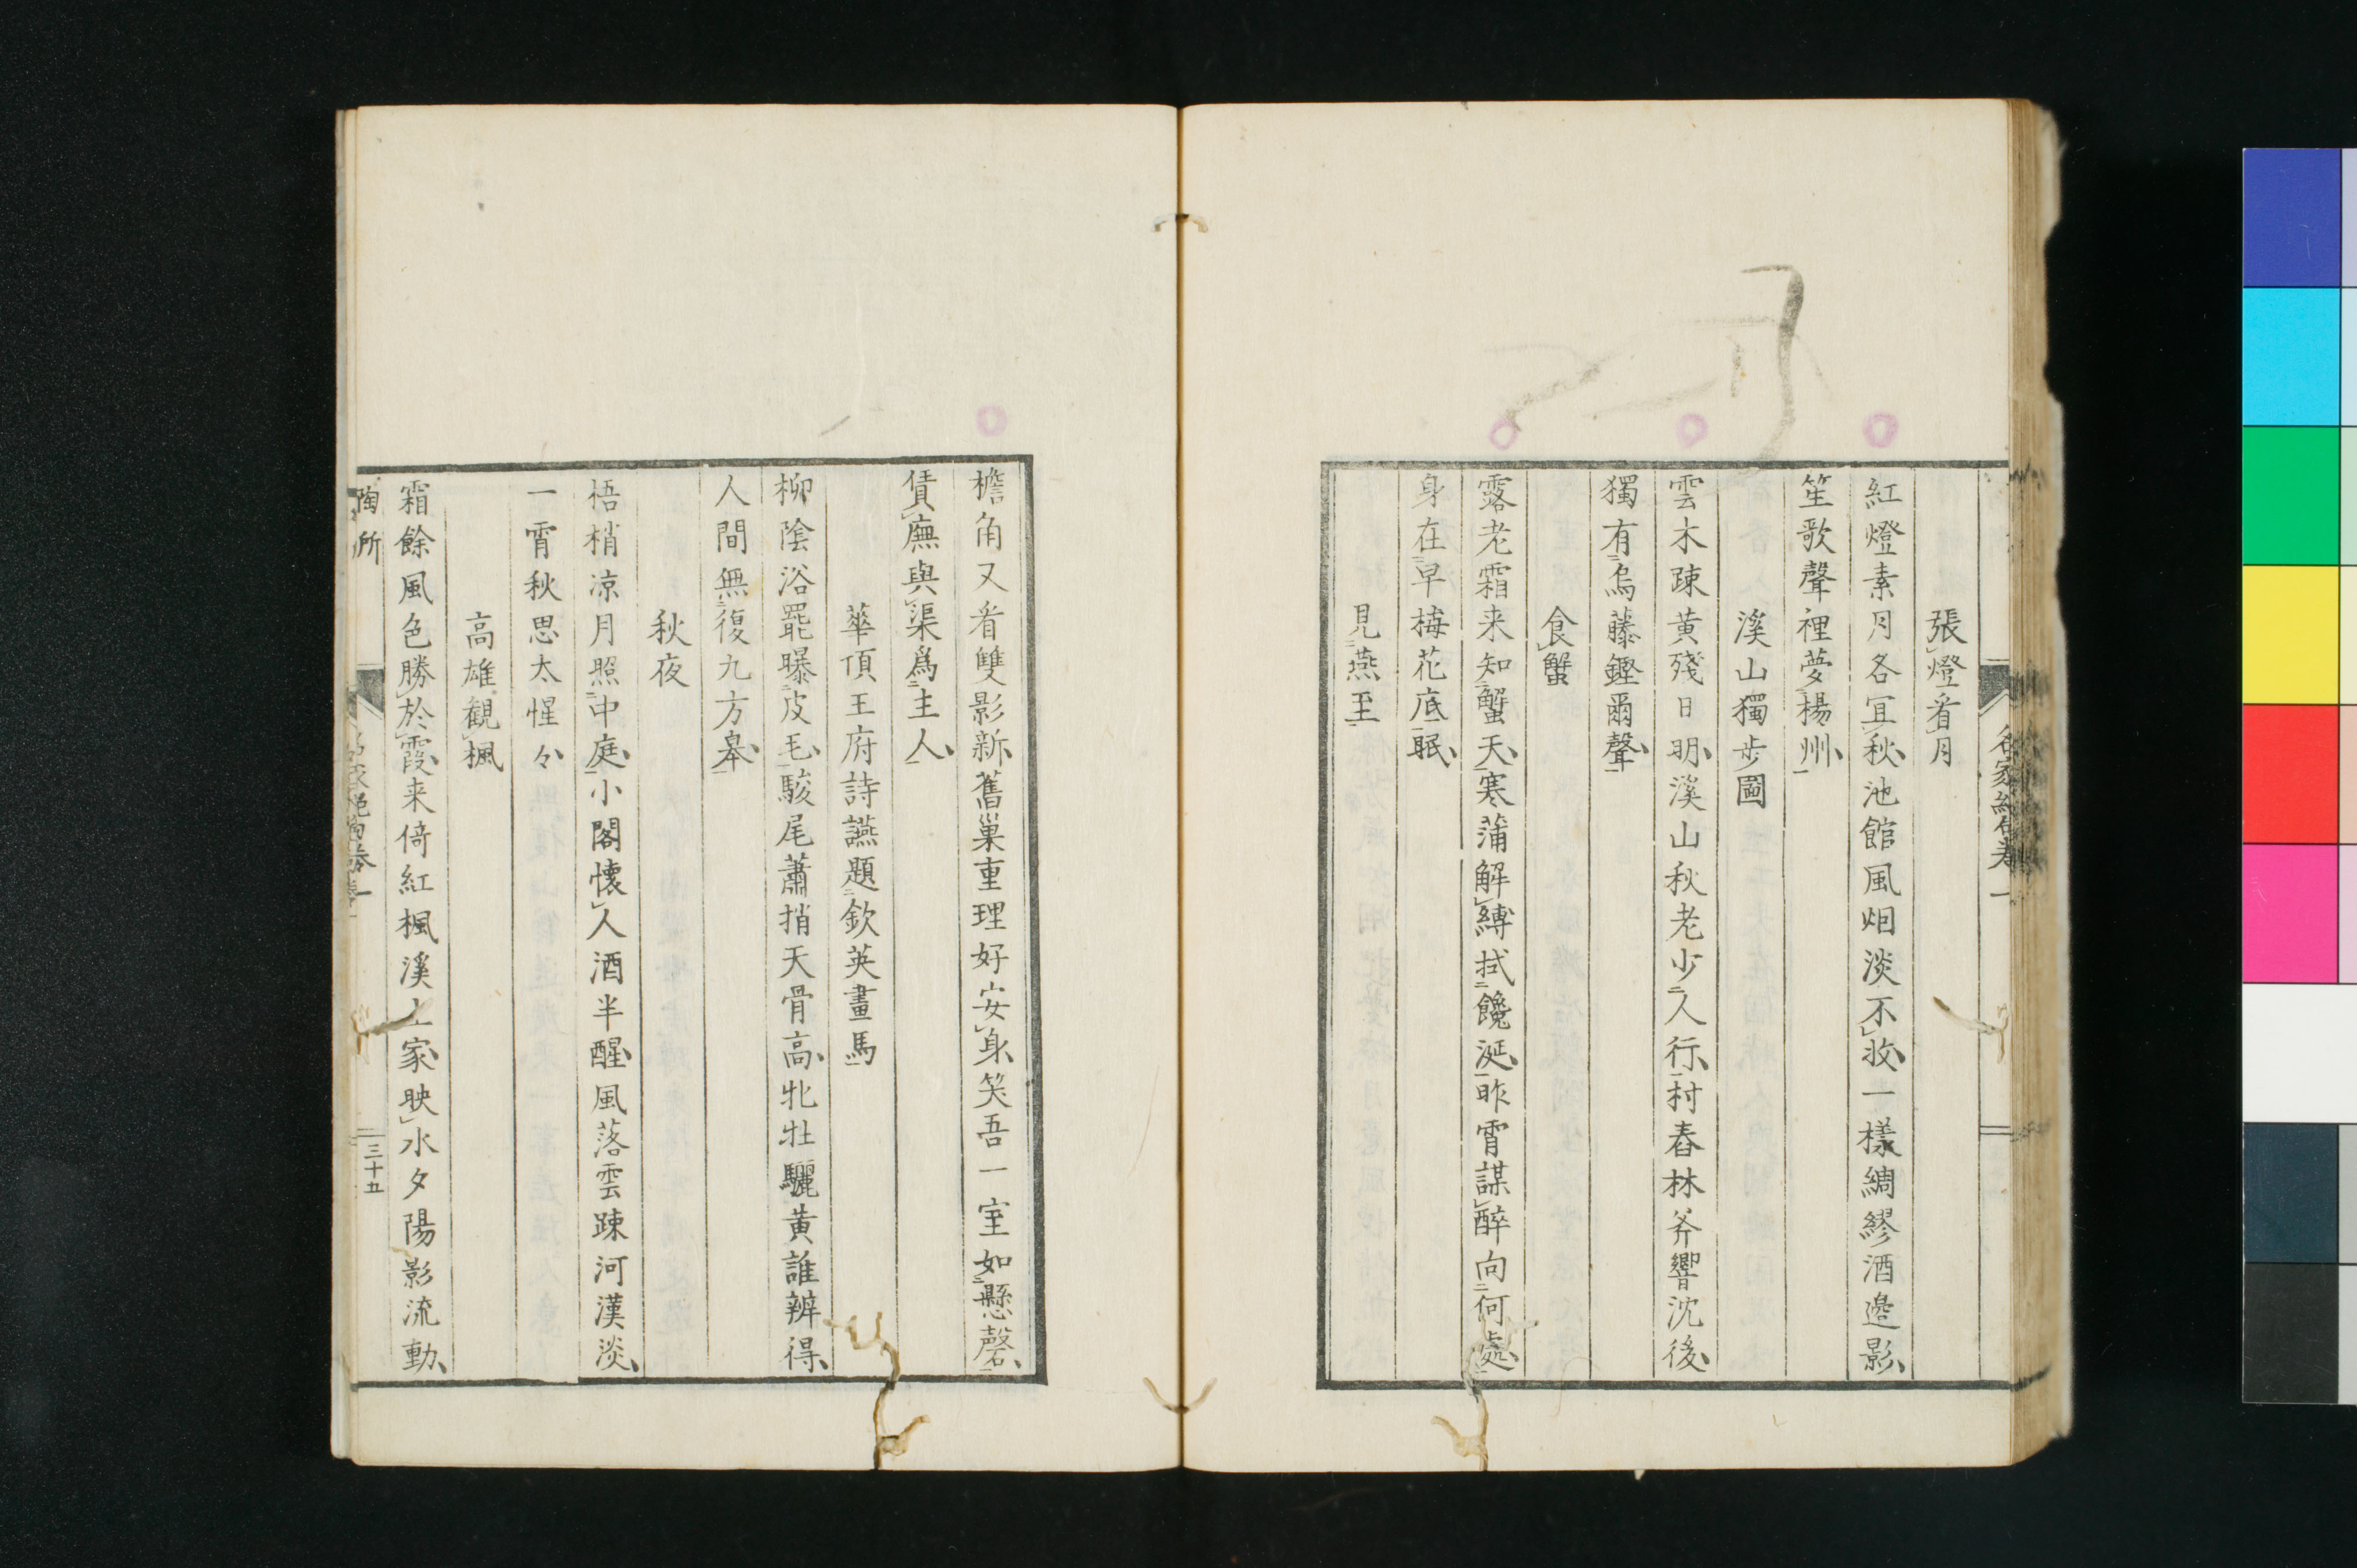 張燈看月
紅燈素月各宜秋池館風烟淡不收一樣綢繆酒邊影
笙歌聲裡夢楊州
溪山獨步圖
雲木疎黄殘日明溪山秋老少人行村舂林斧響沈後
獨有烏藤鏗爾聲
食蟹
露老霜来知蟹天寒蒲解縛拭饞涎昨宵謀醉向何處
身在早梅花底眠
見燕至
名家絶句巻一
檐角又看雙影新舊巢重理好安身笑吾一室如懸磬
賃廡與渠爲主人
華頂王府詩讌題欽英畫馬
柳陰浴罷曝皮毛駿尾蕭捎天骨高牝牡驪黄誰辨得
人間無復九方皋
秋夜
梧梢凉月照中庭小閣懷人酒半醒風落雲疎河漢淡
一宵秋思太惺々
高雄観楓
霜餘風色勝於霞来倚紅楓溪上家映水夕陽影流動
陶所
名家絶句巻一
三十五